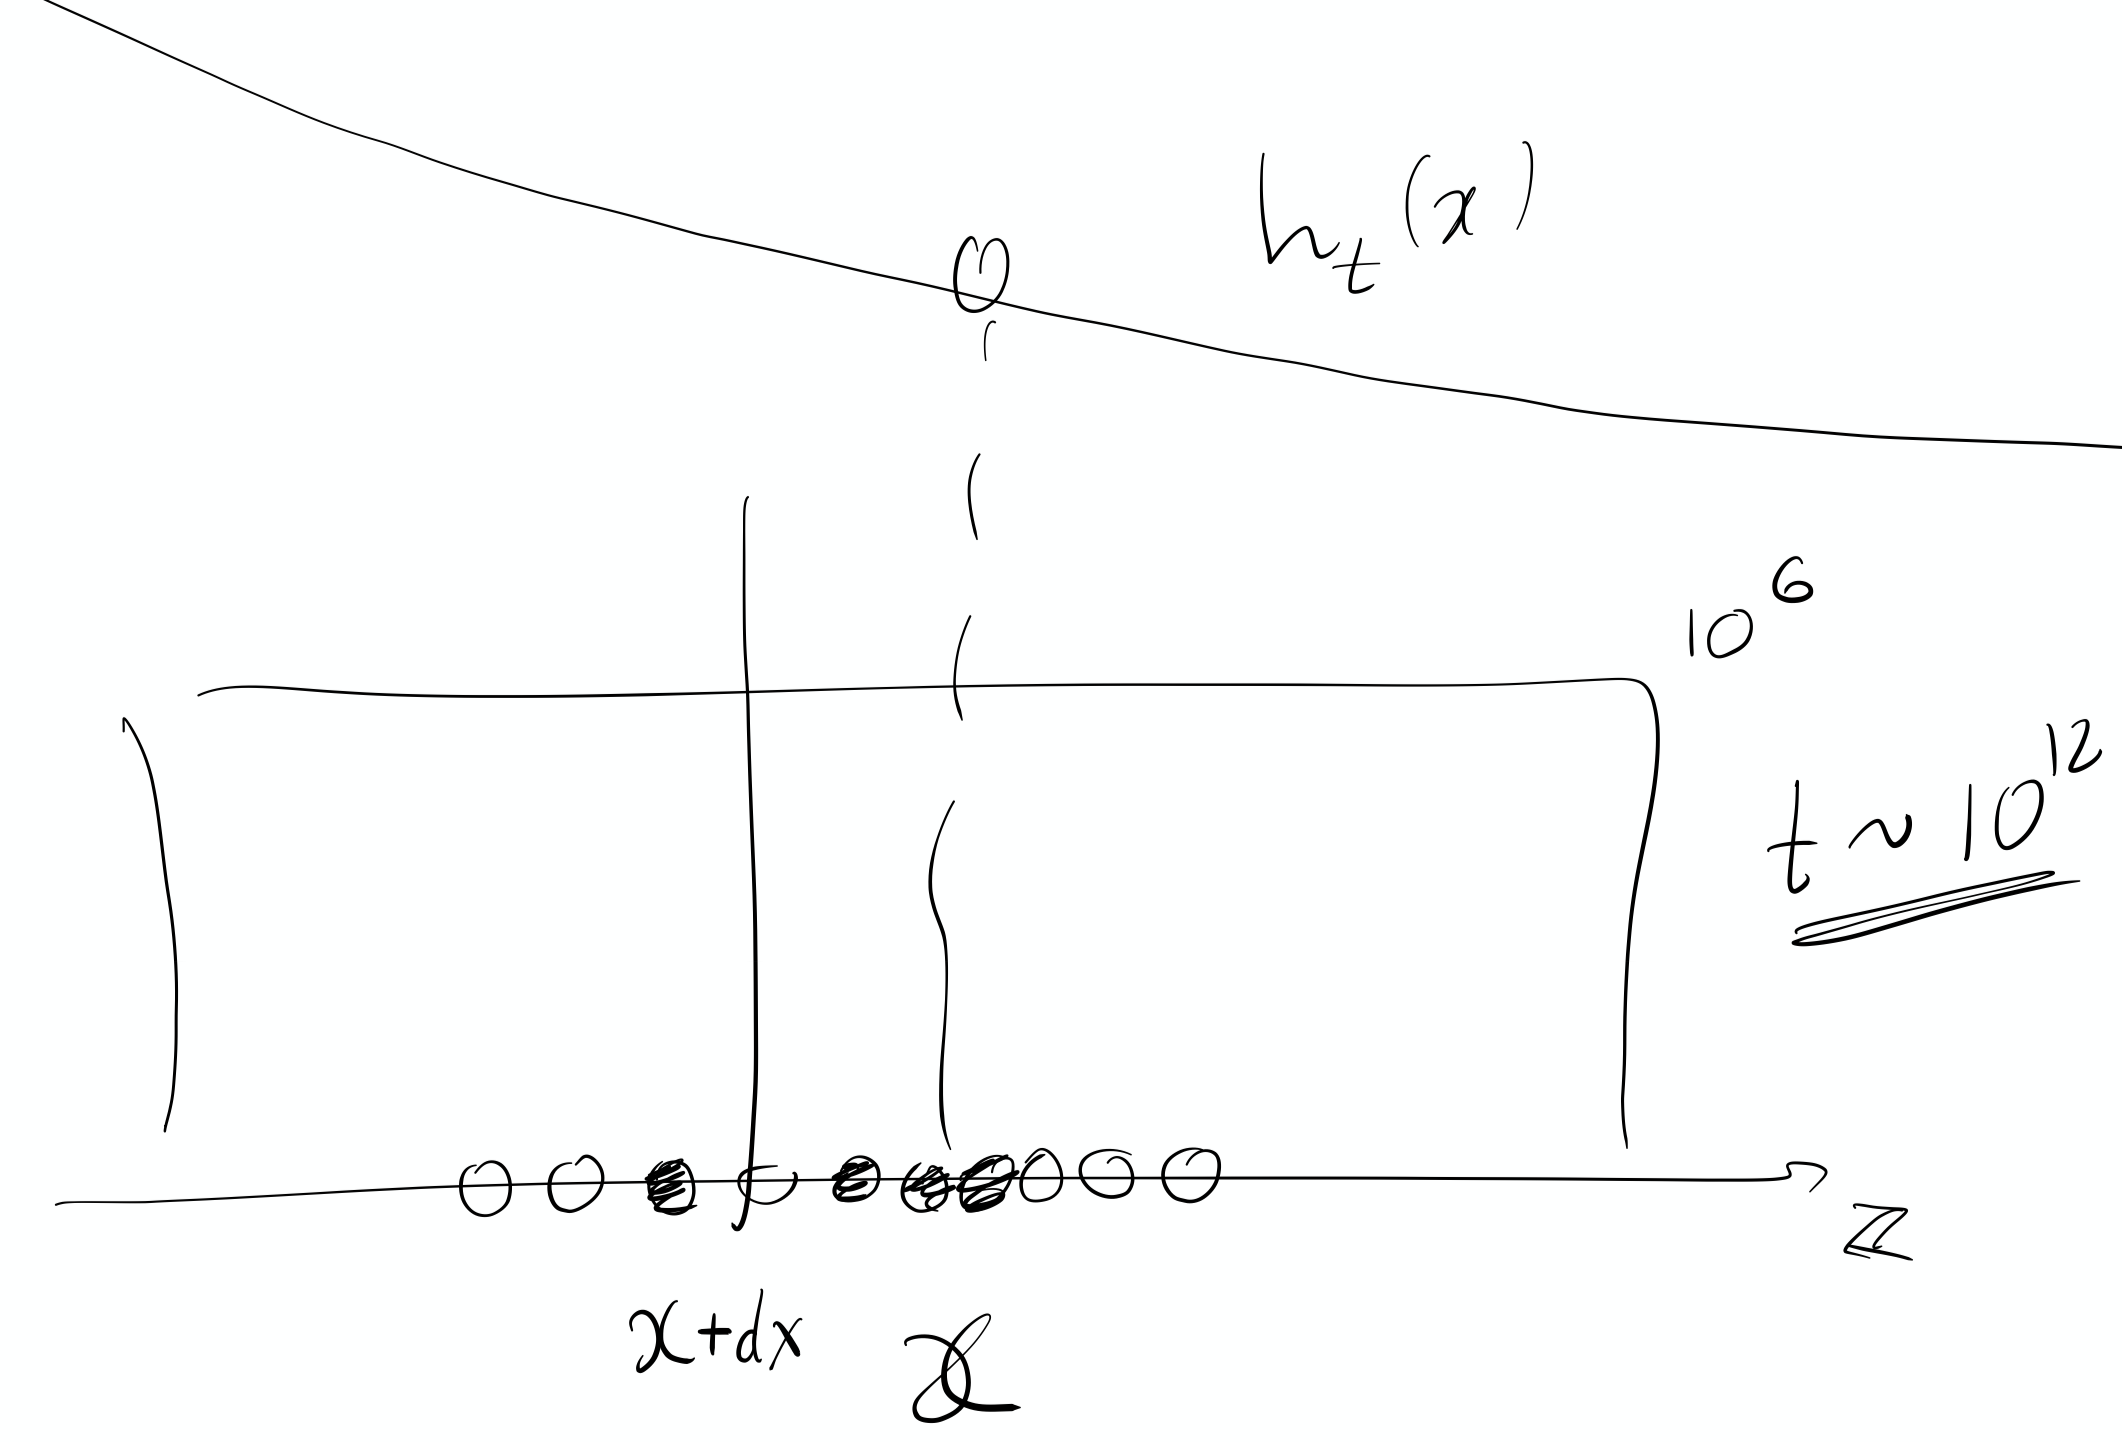 h_t(x)
10^6
t ~ 10^12
ℤ
x+dx
x